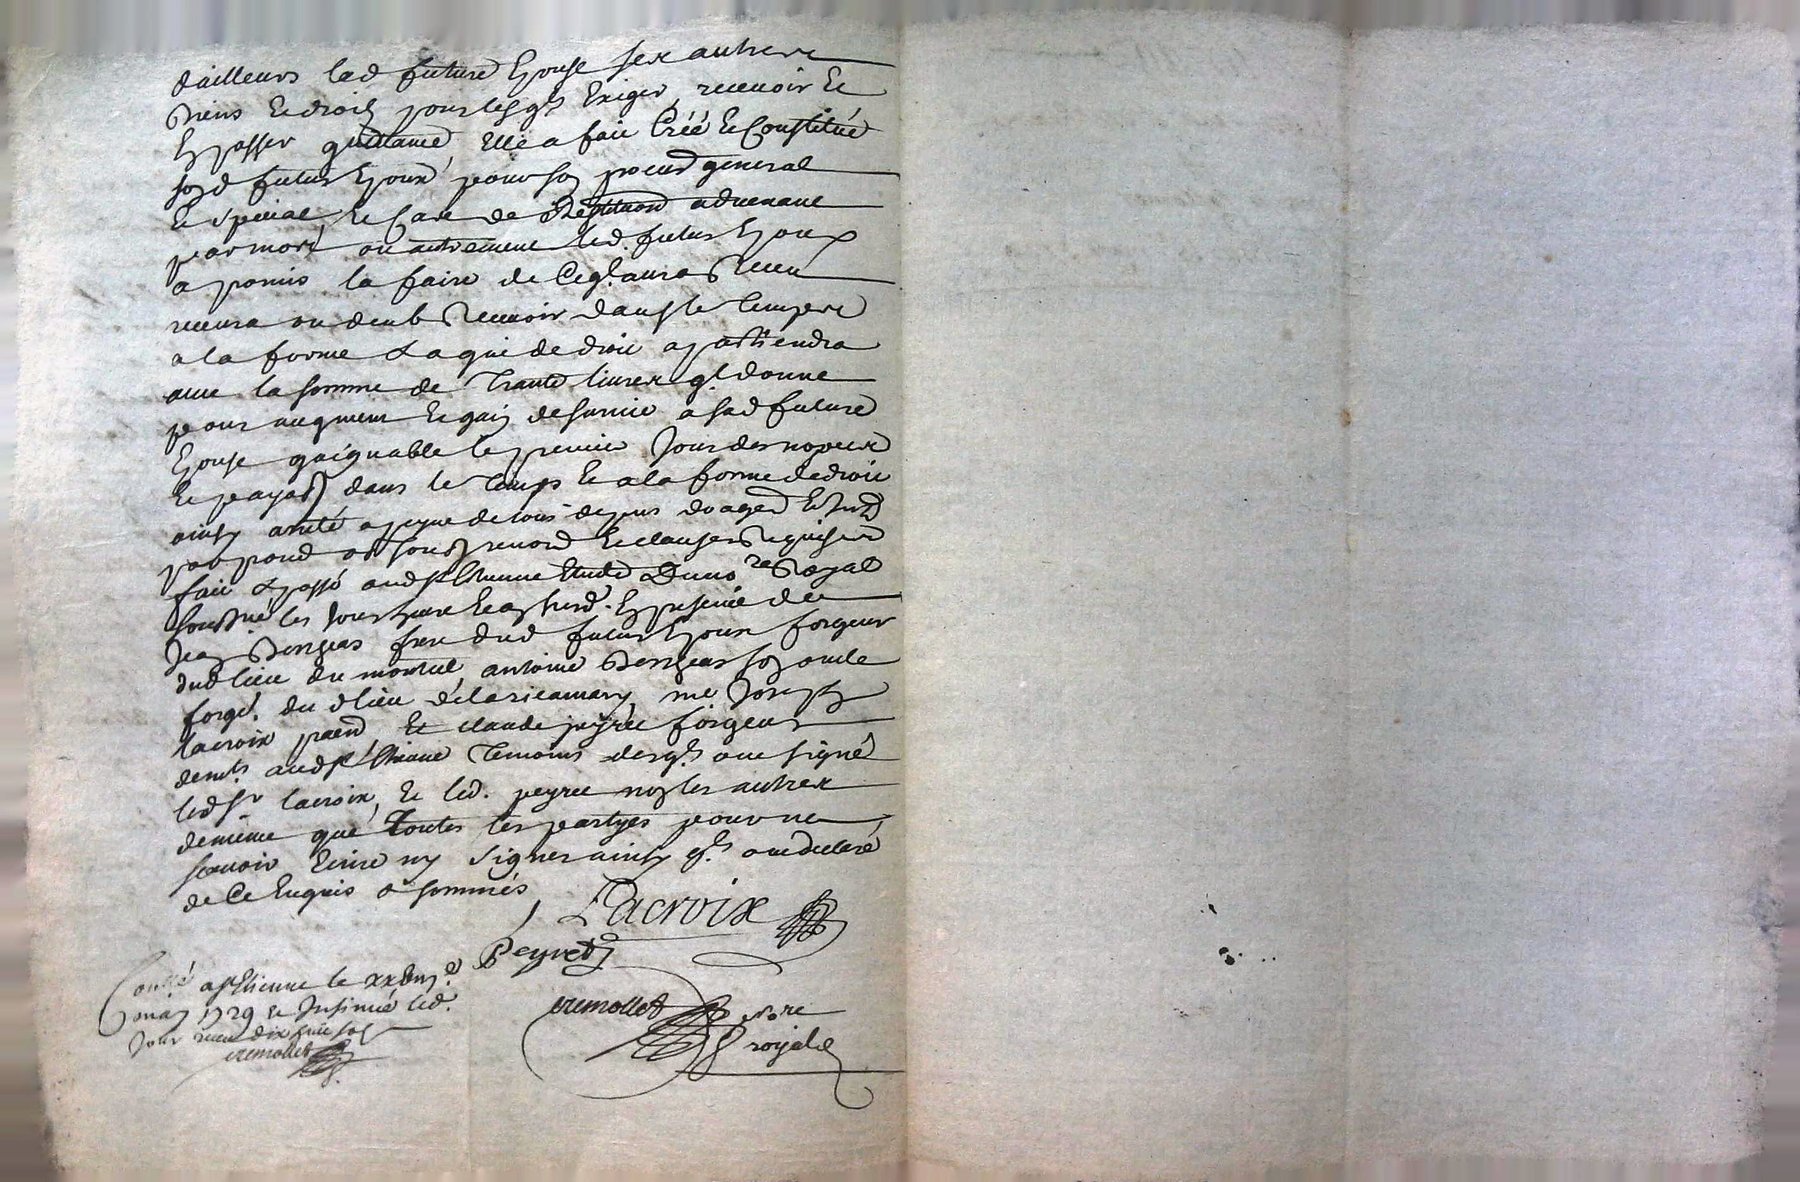 d'ailleurs lad future Epouse ses autres
biens Et droits pour lesqls Exiger, recevoir Et
En passer quittance Elle a fait Créé Et Constitué
sond futur Epoux pour son procur general
Et special, Et Cas de Restituon advenant
par mort ou autrement led. futur Epoux
a promis la faire de Ce ql aura Receu
recevra ou deub Recevoir dans le temps Et
a la forme & a qui de droit apartiendra
avec la somme de Trante livres ql donne
pour augment Et gain de survie a sad future
Epouse gaignable le premier Jour des nopces
Et payab dans le temps Et a la forme de droit
ainsy arreté a peyne de tous depens domages Et Int
par promes ob soub renon Et clauses Requises
fait & passé aud St Etienne Etude Du no re Royal
soubné les Jour Et an susd. En presence de
Jean frere dud futur Epoux forgeur
dud lieu du montcel, antoine son oncle
forgr. du d lieu de la ricamary, me Joseph
lacroix praen, Et claude peyret forgeur
demts aud St Etienne Temoins desqls ont signé
led Sr lacroix, Et led. peyret non les autres
de meme que Toutes les partyes pour ne
scavoir Ecrire ny signer ainsy qls ont declaré
de Ce Enquis & sommés
Lacroix
Peyret
no re
royal
Conllé a St Etienne le
may 1729 Et Insinué led.
Jour receu dix huit sols